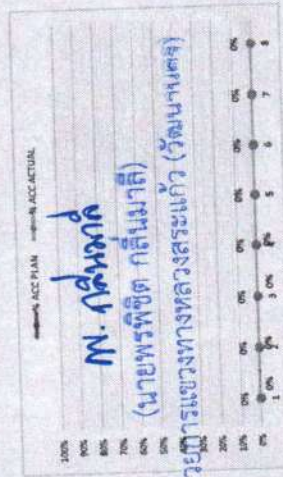 ACC PLAN % ACC ACTUAL
100%
90%
80%
70%
60%
50%
40%
30%
20%
10%
0%
0% 0% 0% 0% 0% 0% 0% 0%
0% 0% 0%
1 2 3 4 5 6 7 8
(นายพรพิชิต กลิ่นมาลี)
วยการแขวงทางหลวงสระแก้ว (วัฒนานคร)